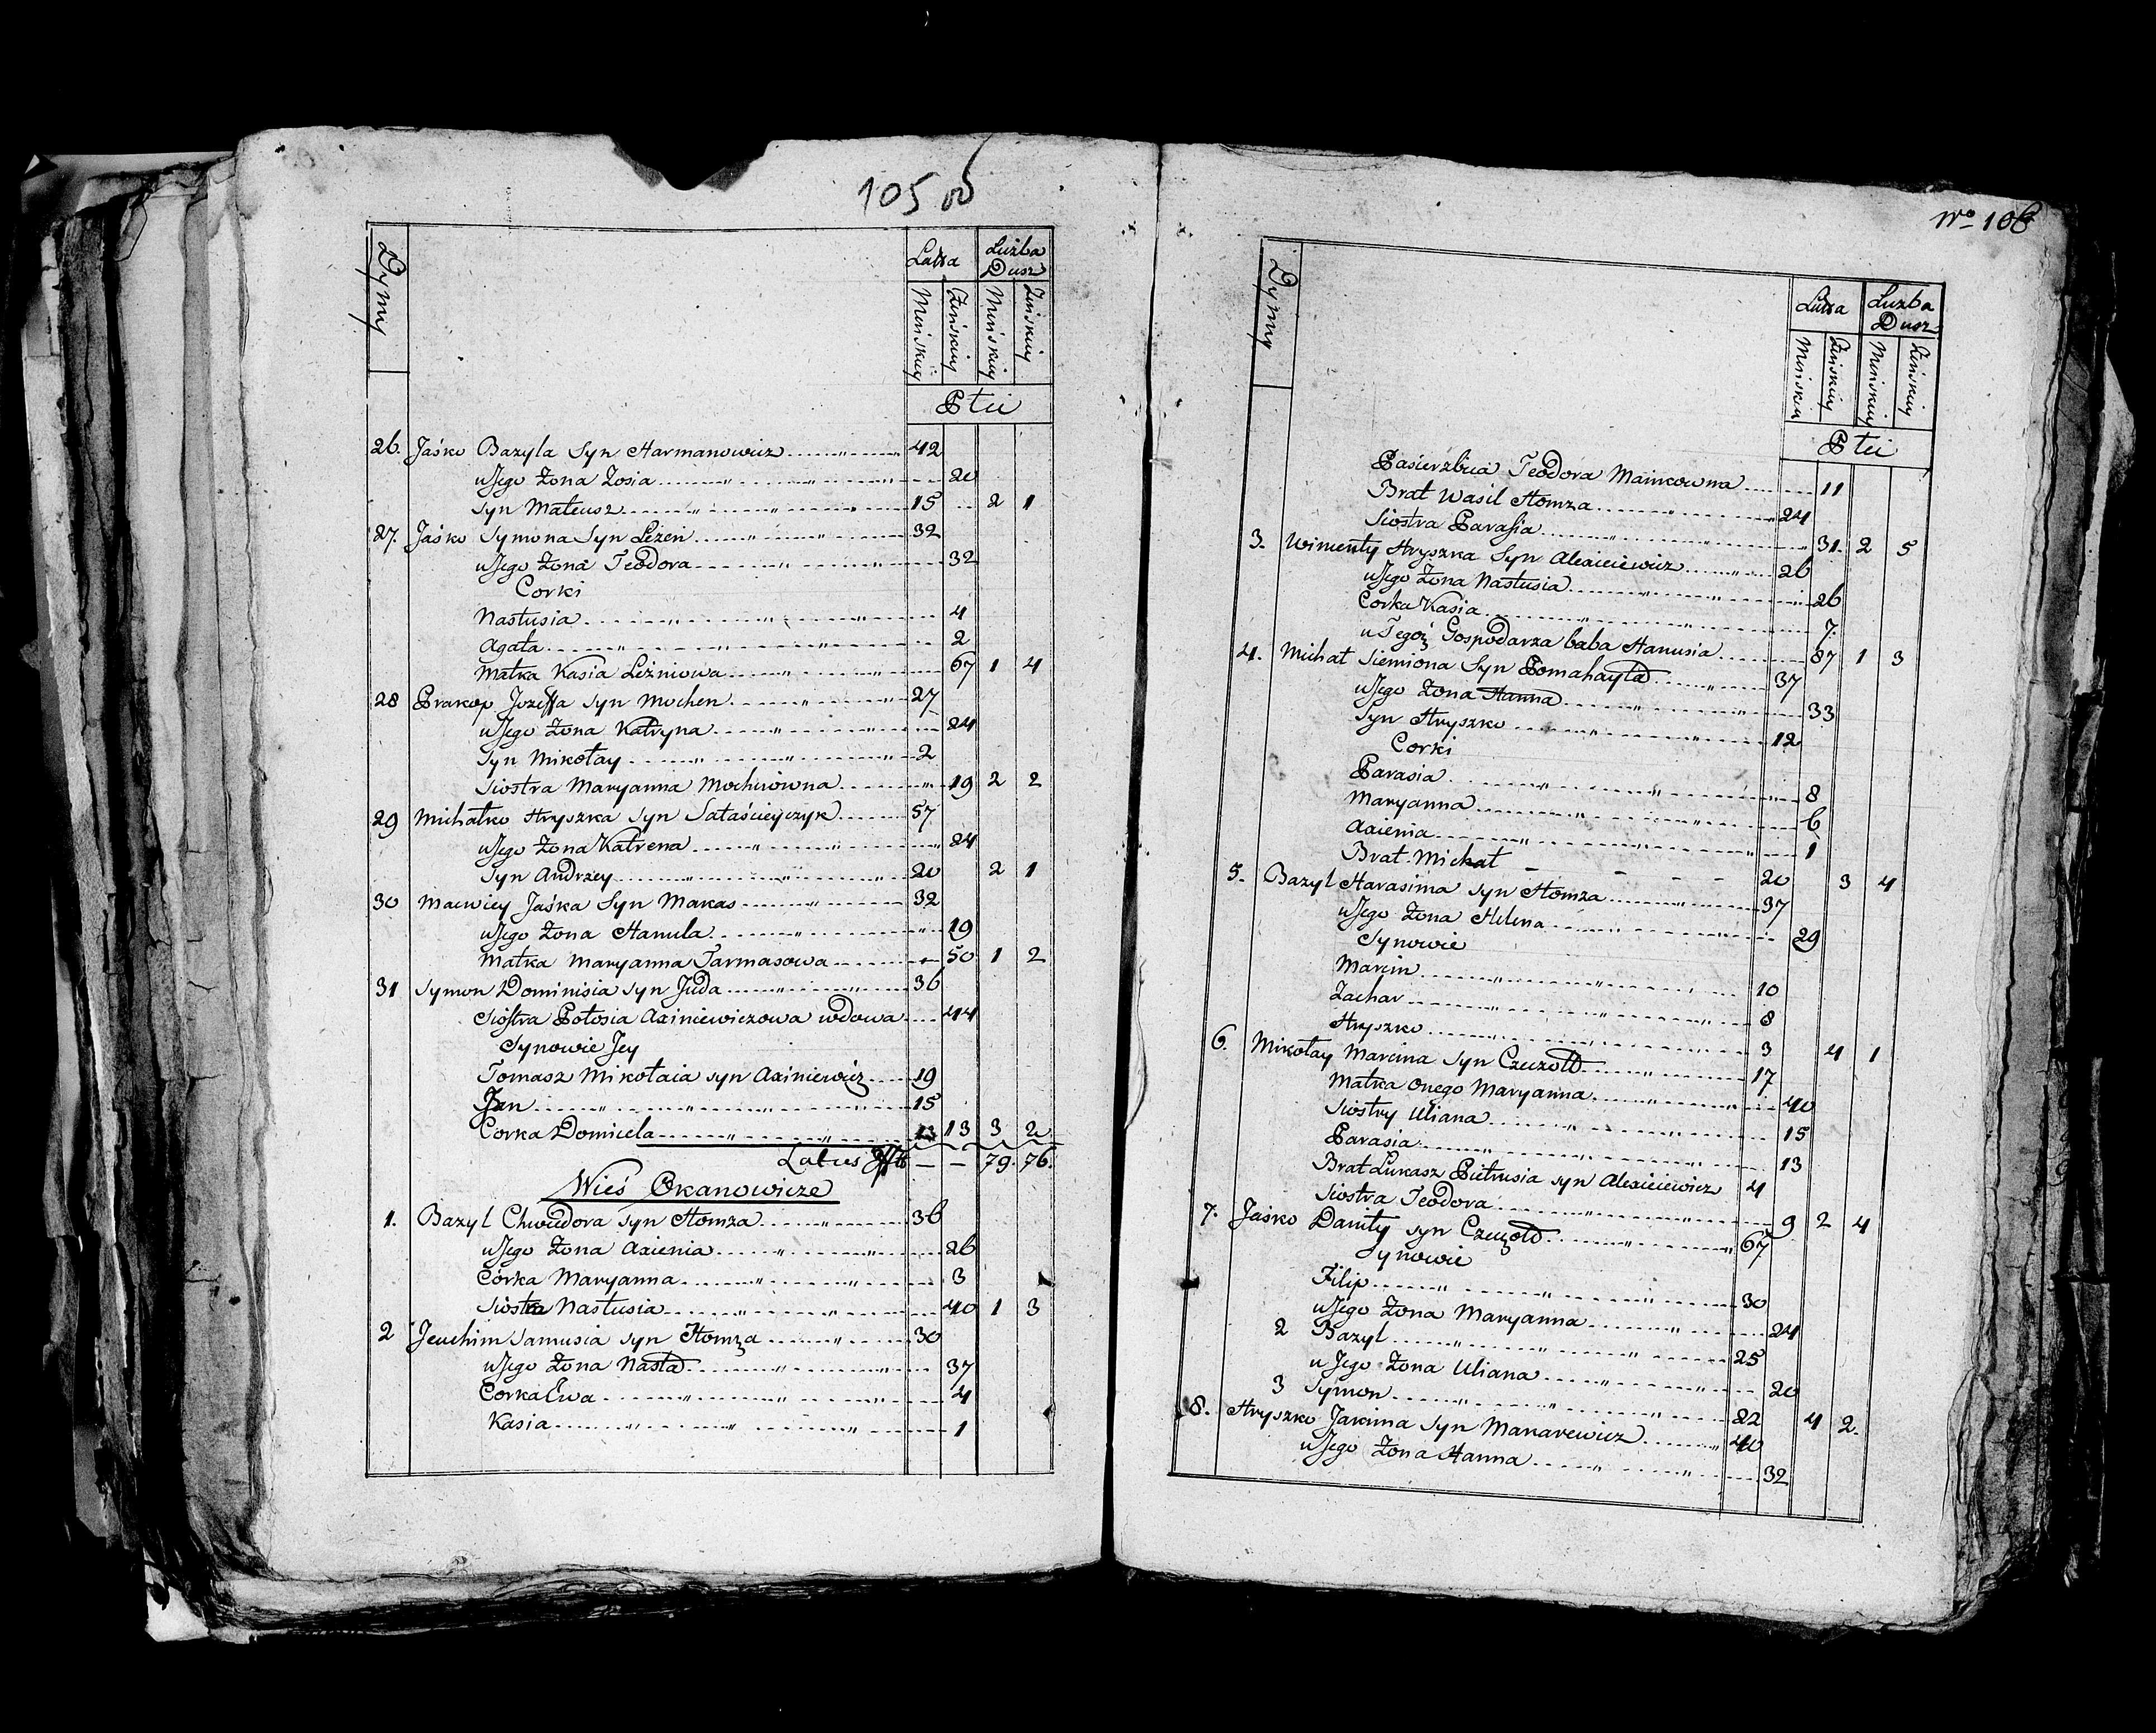 105 об
Dymy
Latta
Liżba Dusz
Męńskiey
Żeńskiey
Męńskiey
Żeńskiey
Płci
26. Jaśko Bazyla Syn Harmanowicz 42
u Jego Żona Zosia 20
Syn Mateusz 15 2 1
27. Jaśko Symona Syn Leżeń 32
u Jego Żona Teodora 32
Corki
Nastusia 4
Agata 2
Matka Kasia Leżniowa 67 1 4
28 Prakop Jozeffa Syn Mochen 27
u Jego Żona Katryna 24
Syn Mikołay 2
Siostra Maryanna Mochnówna 19 2 2
29 Michałko Hryszka Syn Sataściejczyk 57
u Jego Żona Katrena 24
Syn Andrzey 20 2 1
30 Maciwiey Jaśka Syn Makas 32
u Jego Żona Hanula 19
Matka Maryanna Tarmasowa 50 1 2
31 Symon Dominisia Syn Juda 36
Siostra Połosia Axiniewiczowa wdowa 44
Synowie Jey
Tomasz Mikołaia syn Axiniewicz 19
Jan 15
Corka Domicela 13 3 2
Latus — — 79. 76.
Wieś Okanowicze
1. Bazyl Chwiedora syn Homza 36
u Jego Żona Axienia 26
Córka Maryanna 3
Siostra Nastusia 40 1 3
2 Jeuchim Samusia syn Homza 30
u Jego Żona Nasta 37
Corka Ewa 4
Kasia 1
No 106
Dymy
Latta
Liczba Dusz
Męńskiey
Żeńskiey
Męńskiey
Żeńskiey
Płci
Pasierzbica Teodora Mainkowna 11
Brat Wasil Homza 24
Siostra Parasia 31. 2 5
3. Wincenty Hryszka Syn Alexieiewicz 26
u Jego Żona Nastusia 26
Corka Kasia 7.
u Tegoż Gospodarza baba Hanusia 87 1 3
4. Michał Siemiona Syn Pomahayła 37
u Jego Żona Hanna 33
Syn Hryszko 12
Corki
Parasia 8
Maryanna 6
Axienia 1
Brat Michał 20 3 4
5. Bazyl Harasima syn Homza 37
u Jego Żona Helena 29
Synowie
Marcin 10
Zachar 8
Hryszko 3 4 1
6. Mikołay Marcina Syn Czeczołd 17
Matka Onego Maryanna 40
Siostry Uliana 15
Parasia 13
Brat Łukasz Pietrusia syn Alexieiewicz 4
Siostra Teodora 9 2 4
7. Jaśko Daniły syn Czeczołd 67
Synowie
Filip 30
u Jego Żona Maryanna 24
2 Bazyl 25
u Jego Żona Uliana 20
3 Symon 22 4 2.
8. Hryszko Jakima Syn Makarewicz 40
u Jego Żona Hanna 32